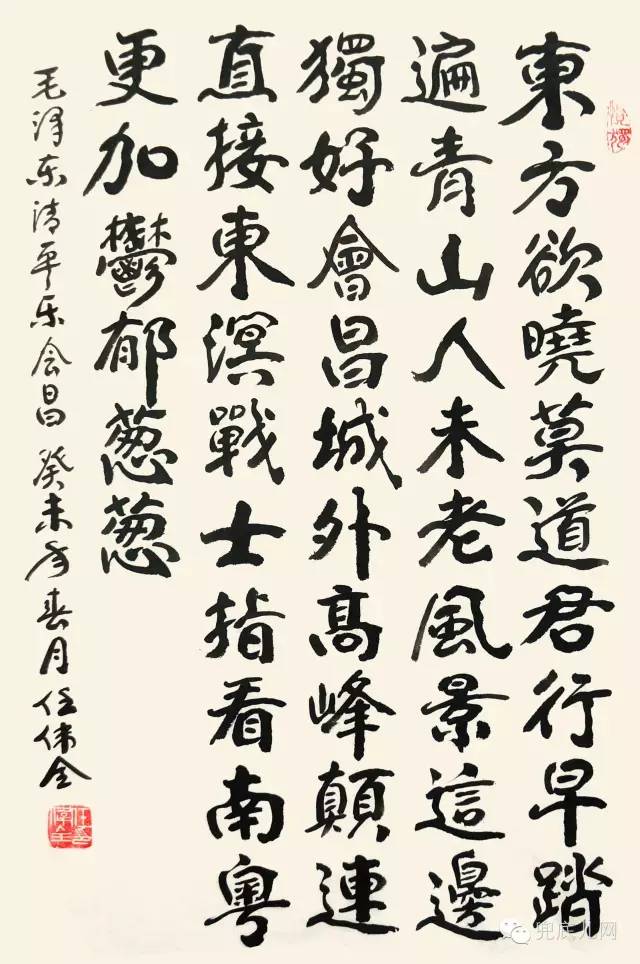 東方欲曉莫道君行早踏
遍青山人未老風景這邊
獨好會昌城外高峰顛連
直接東溟戰士指看南粵
更加鬱郁葱葱
毛泽东清平乐会昌 癸未年春月任伟全
兜底儿网